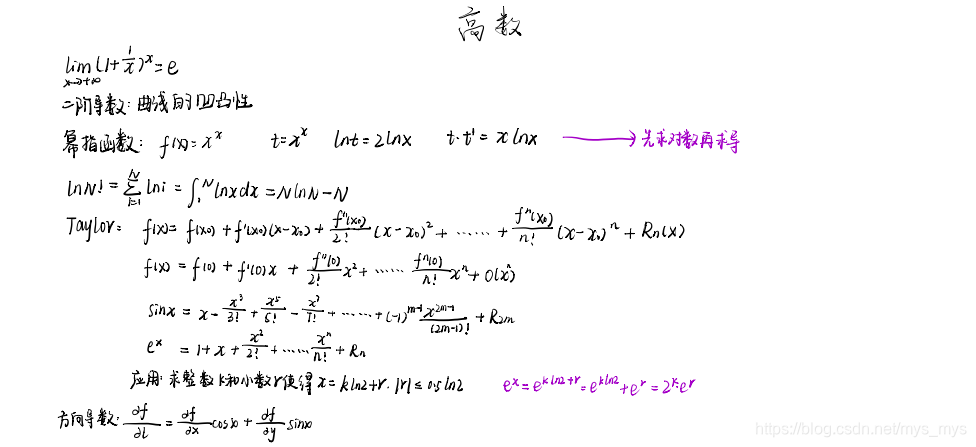 高数
lim(1+1/x)^x=e
x→+∞
二阶导数:曲线的凹凸性
幂指函数: f(x)=x^x t=x^x lnt=2lnx t·t'=xlnx → 先求对数再求导
lnN!=∑_{i=1}^{N} lni=∫_1^N lnxdx=NlnN-N
Taylor: f(x)=f(x₀)+f'(x₀)(x-x₀)+f''(x₀)/2!(x-x₀)^2+……+f^n(x₀)/n!(x-x₀)^n+Rn(x)
f(x)=f(0)+f'(0)x+f''(0)/2!x^2+……f^n(0)/n!x^n+o(x^n)
sinx=x-x^3/3!+x^5/5!-x^7/7!+……+(-1)^{m-1}x^{2m-1}/(2m-1)!+R2m
e^x=1+x+x^2/2!+……x^n/n!+Rn
应用:求整数k和小数r使得x=kln2+r.|r|≤0.5ln2 e^x=e^{kln2+r}=e^{kln2}+e^r=2^k·e^r
方向导数:∂f/∂l=∂f/∂x cosα+∂f/∂y sinα
https://blog.csdn.net/mys_mys